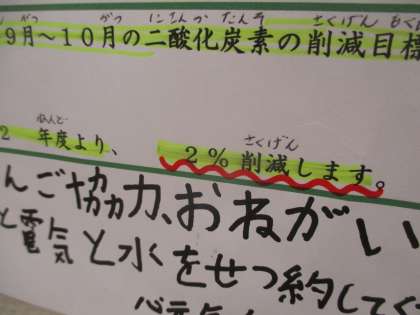 がつ がつ にさんかたんそ さくげん もく
9月～10月の二酸化炭素の削減目標
ねんど さくげん
2 年度より、 2%削減します。
んご協力、おねがい
と電気と水をせつ約して